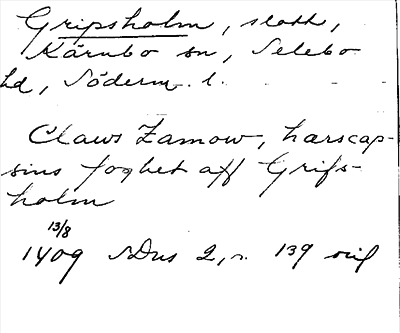 Gripsholm, slott,
Kärnbo sn, Selebo
hd, Söderm. l.
Claws Zamow, harscap-
sins foghet aff Grifs-
holm
13/8
1409 SDns 2, s. 139 orig